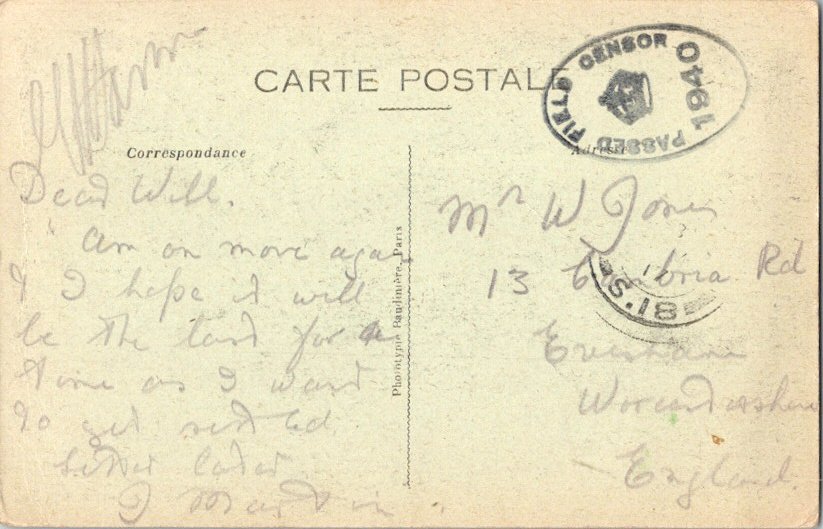 CARTE POSTALE
PASSED FIELD CENSOR 1940
Correspondance
Adresse
Dear Will.
Am on move again
& I hope it will
be the last for a
time as I want
to get settled
better later
J Martin
Phototypie Baudinière, Paris
Mr W Jones
13 Rd
Evesham
England.